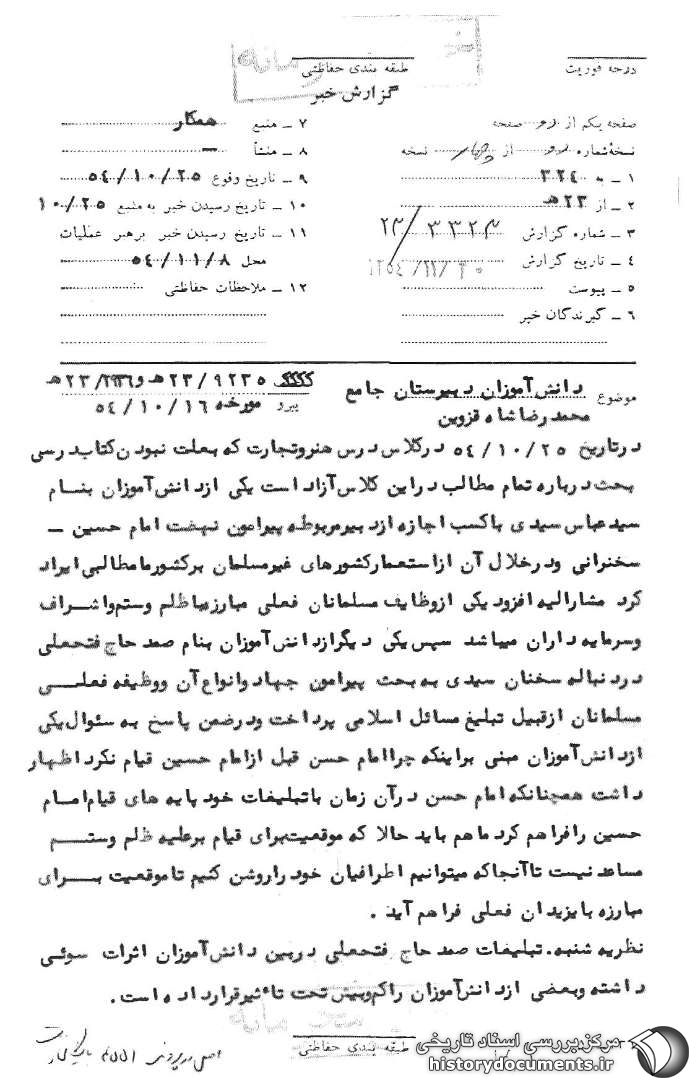 درجه فوریت
طبقه بندی حفاظتی
گزارش خبر
صفحه یکم از دو صفحه
نسخهٔ شماره دو از چهار نسخه
۱ ــ به ۳۲۴
۲ ــ از ۲۳ هـ
۳ ــ شماره گزارش
۴ ــ تاریخ گزارش
۵ ــ پیوست
۶ ــ گیرندگان خبر
۷ ــ منبع همکار
۸ ــ منشأ ــ
۹ ــ تاریخ وقوع ۵۴/۱۰/۲۵
۱۰ ــ تاریخ رسیدن خبر به منبع ۱۰/۲۵
۱۱ ــ تاریخ رسیدن خبر برهبر عملیات
محل ۵۴/۱۱/۸
۱۲ ــ ملاحظات حفاظتی
موضوع دانش آموزان دبیرستان جامع
محمدرضا شاه قزوین
۲۳/۹۲۳۵ هـ و ۲۳/۲۹۳۶ هـ
پیرو مورخه ۵۴/۱۰/۱۶
در تاریخ ۵۴/۱۰/۲۵ در کلاس درس هنر و تجارت که بعلت نبودن کتاب درسی
بحث درباره تمام مطالب در این کلاس آزاد است یکی از دانش آموزان بنام
سید عباس سیدی با کسب اجازه از دبیر مربوطه پیرامون نهضت امام حسین ــ
سخنرانی و در خلال آن از استعمار کشورهای غیرمسلمان بر کشور ما مطالبی ایراد
کرد مشارالیه افزود یکی از وظایف مسلمانان فعلی مبارزه با ظلم و ستم و اشراف
و سرمایه داران میباشد سپس یکی دیگر از دانش آموزان بنام صمد حاج فتحعلی
در دنباله سخنان سیدی به بحث پیرامون جهاد و انواع آن و وظیفه فعلی
مسلمانان از قبیل تبلیغ مسائل اسلامی پرداخت و در ضمن پاسخ به سئوال یکی
از دانش آموزان مبنی بر اینکه چرا امام حسن قبل از امام حسین قیام نکرد اظهار
داشت همچنانکه امام حسن در آن زمان با تبلیغات خود پایه های قیام امام
حسین را فراهم کرد ما هم باید حالا که موقعیت برای قیام بر علیه ظلم و ستم
مساعد نیست تا آنجا که میتوانیم اطرافیان خود را روشن کنیم تا موقعیت برای
مبارزه با یزیدان فعلی فراهم آید .
نظریه شنبه. تبلیغات صمد حاج فتحعلی در بین دانش آموزان اثرات سوئی
داشته و بعضی از دانش آموزان را کم و بیش تحت تاءثیر قرار داده است .
طبقه بندی حفاظتی
مرکز بررسی اسناد تاریخی
historydocuments.ir